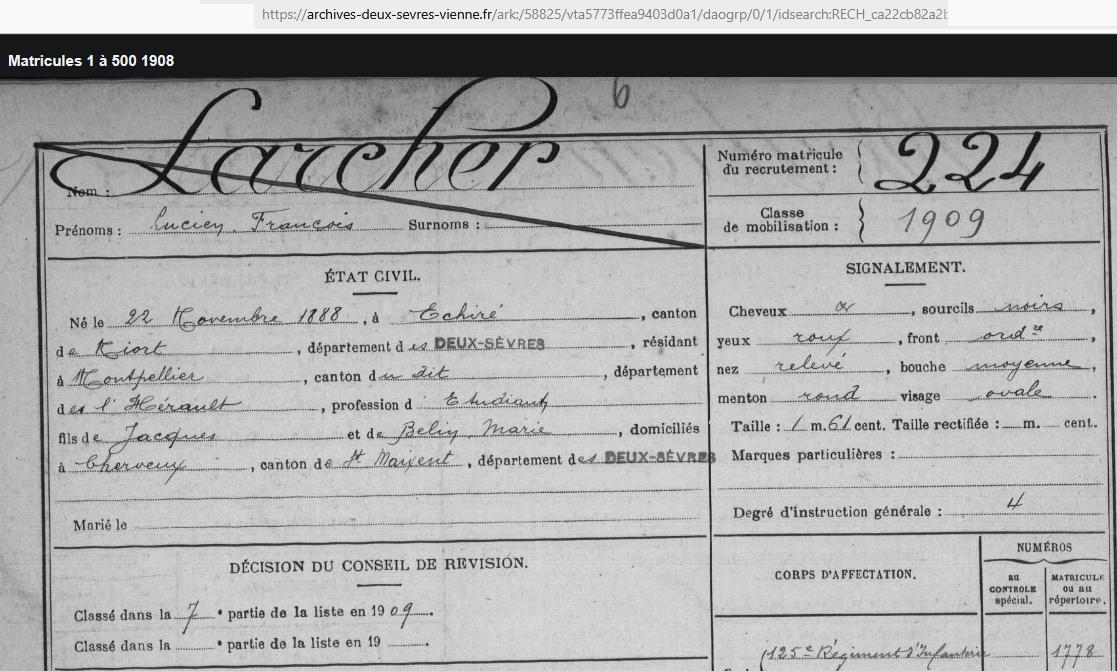 https://archives-deux-sevres-vienne.fr/ark:/58825/vta5773ffea9403d0a1/daogrp/0/1/idsearch:RECH_ca22cb82a2b
Matricules 1 à 500 1908
6
Nom : Larcher
Prénoms : Lucien, François Surnoms :
Numéro matricule du recrutement : 224
Classe de mobilisation : 1909
ÉTAT CIVIL.
Né le 22 Novembre 1888, à Echiré, canton
de Niort, département des DEUX-SÈVRES, résidant
à Montpellier, canton du dit, département
de l'Hérault, profession d'Etudiant
fils de Jacques et de Belin, Marie, domiciliés
à Cherveux, canton de St Maixent, département des DEUX-SÈVRES
Marié le
SIGNALEMENT.
Cheveux et, sourcils noirs,
yeux roux, front ordre,
nez relevé, bouche moyenne,
menton rond visage ovale.
Taille : 1 m. 61 cent. Taille rectifiée : m. cent.
Marques particulières :
Degré d'instruction générale : 4
DÉCISION DU CONSEIL DE REVISION.
Classé dans la 7e partie de la liste en 1909.
Classé dans la e partie de la liste en 19 .
CORPS D'AFFECTATION.
NUMÉROS
AU CONTROLE spécial.
MATRICULE ou au répertoire.
125e Régiment d'Infanterie
1778